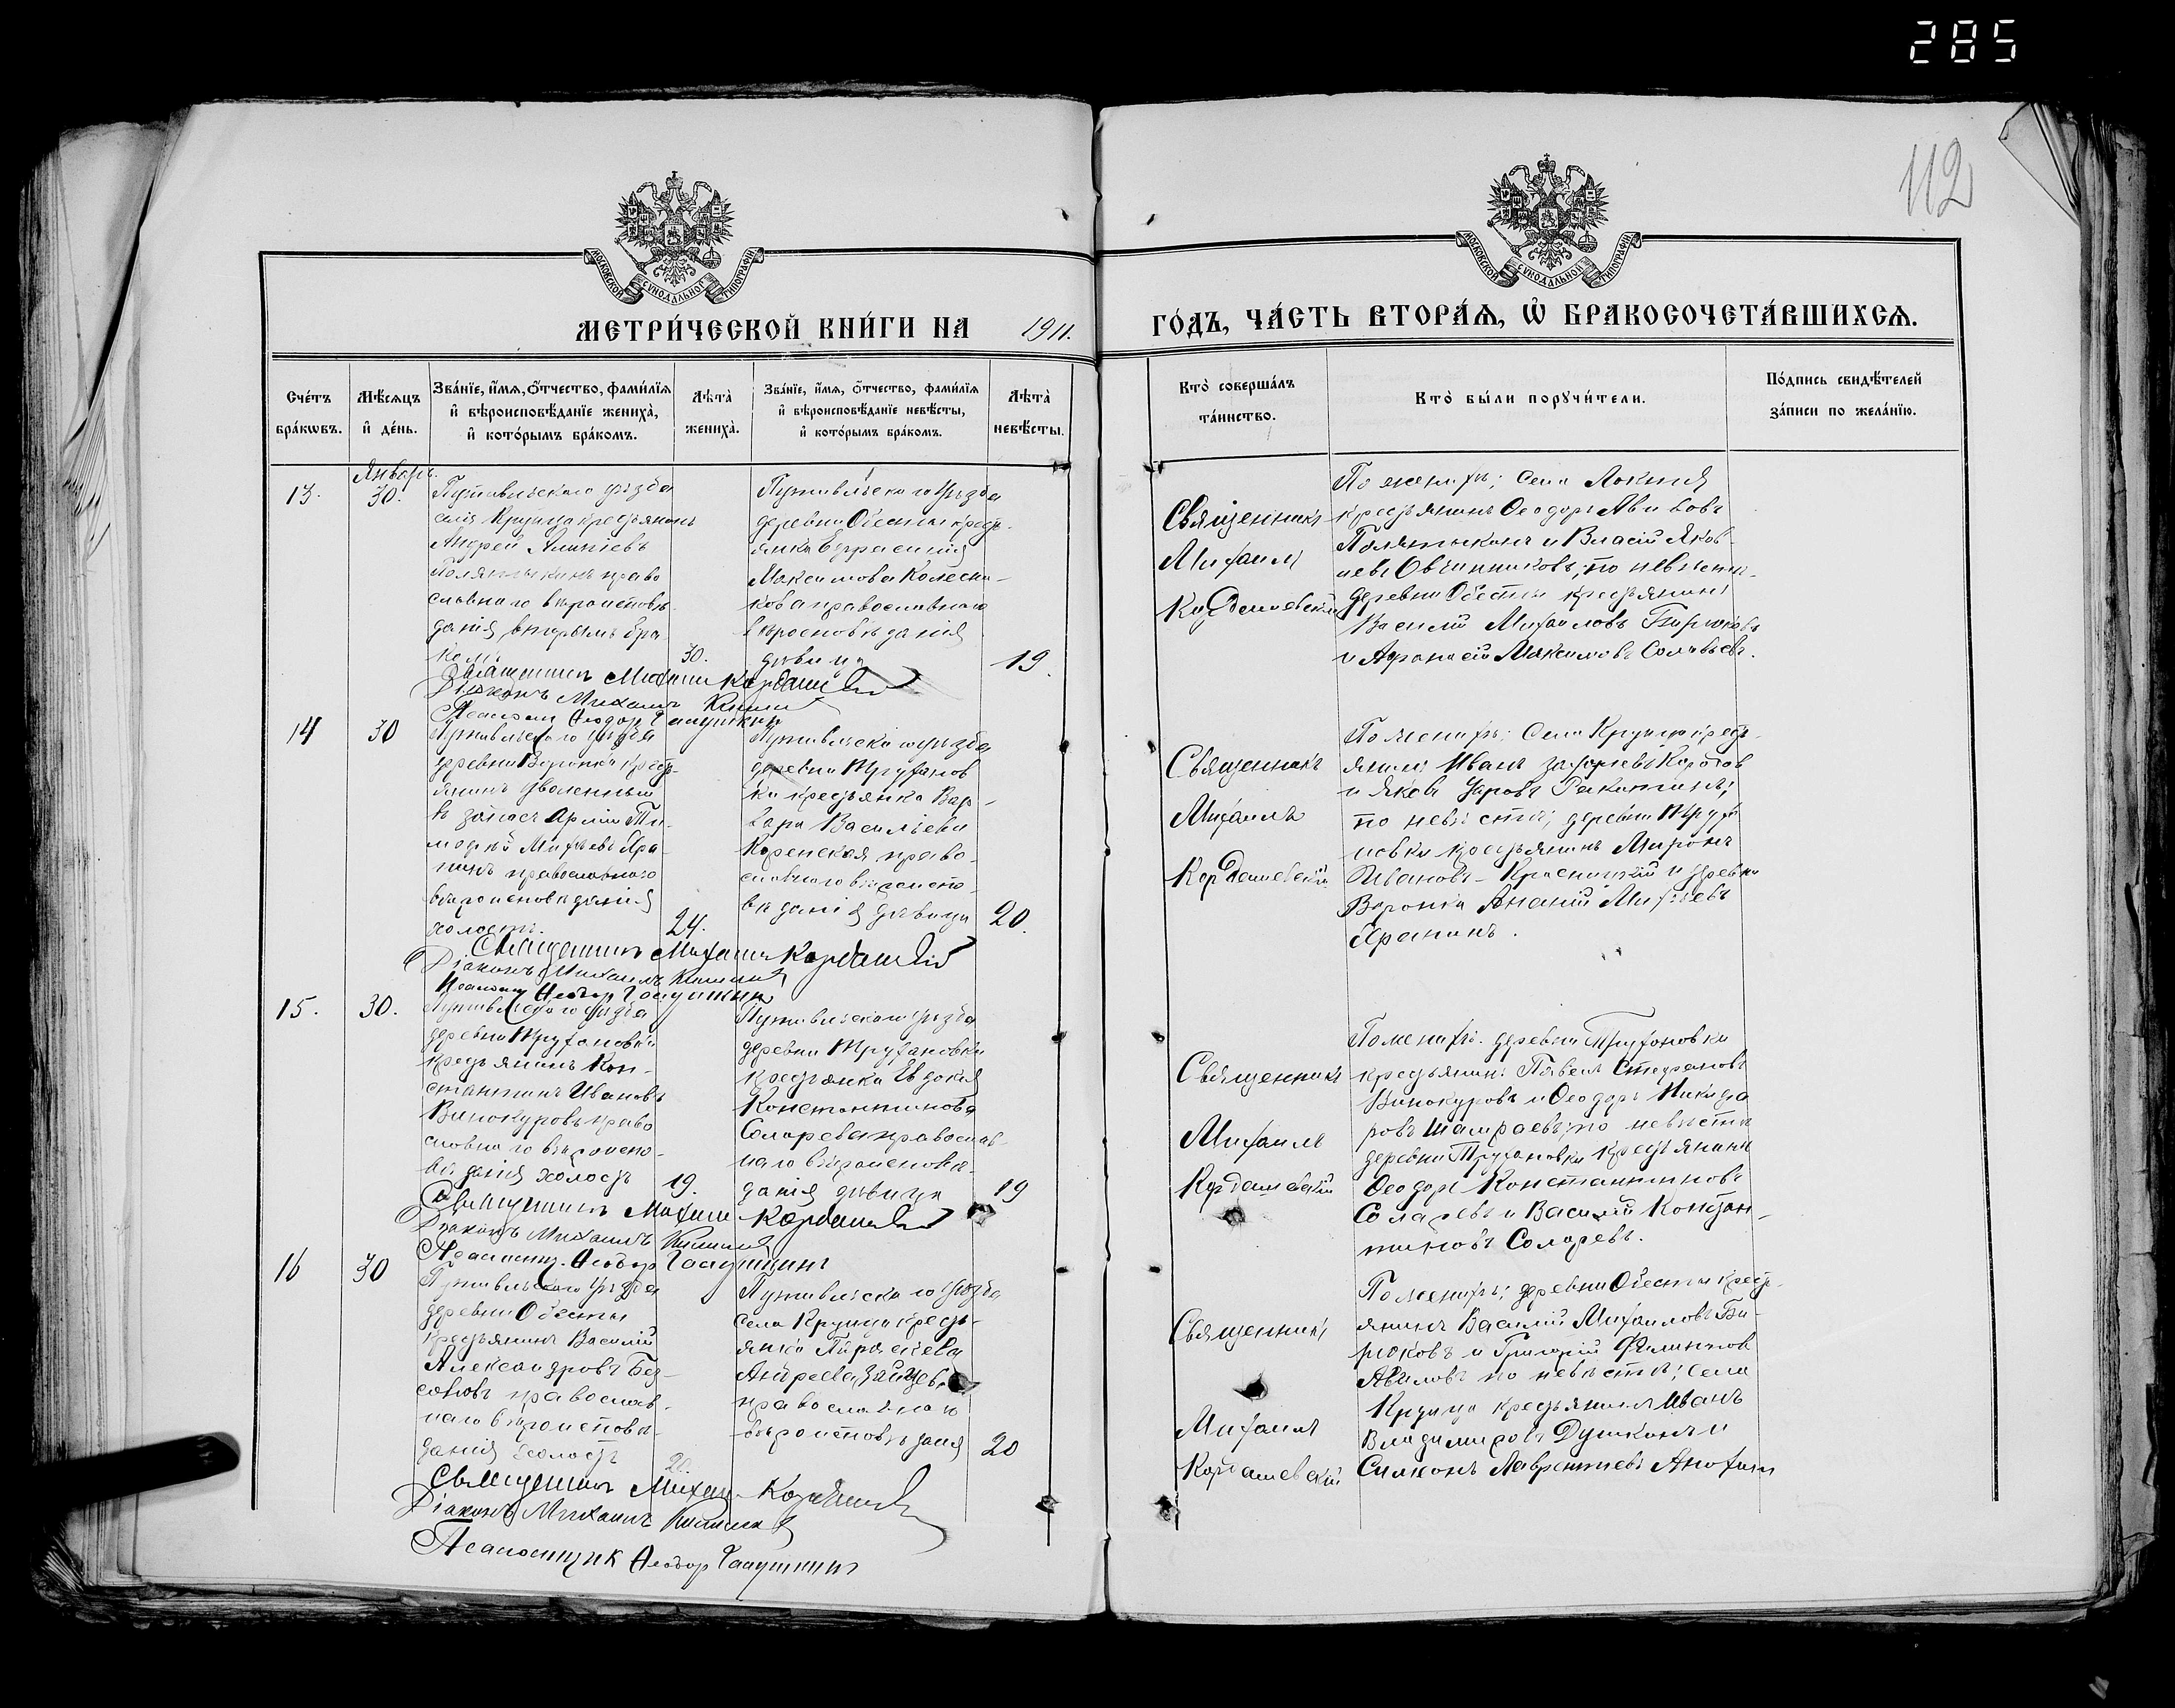 285
112
МОСКОВСКОЙ СѴНОДАЛЬНОЙ ТИПОГРАФІИ
МОСКОВСКОЙ СѴНОДАЛЬНОЙ ТИПОГРАФІИ
МЕТРИ́ЧЕСКОЙ КНИ́ГИ НА 1911. ГО́ДЪ, ЧА́СТЬ ВТОРА́Ѧ, Ѽ БРАКОСОЧЕТА́ВШИХСѦ.
Сче́тъ бра́кѡвъ.
Мѣ́сѧцъ и҆ де́нь.
Зва́нїе, и҆́мѧ, ѻ҆́тчество, фами́лїѧ
и҆ вѣроисповѣ́данїе жениха̀,
и҆ кото́рымъ бра́комъ.
Лѣ́та̀ жениха̀.
Зва́нїе, и҆́мѧ, ѻ҆́тчество, фами́лїѧ
и҆ вѣроисповѣ́данїе невѣ́сты,
и҆ кото́рымъ бра́комъ.
Лѣ́та̀ невѣ́сты.
Кто̀ соверша́лъ
та́инство.
Кто̀ бы́ли порꙋчи́тели.
По́дпись свидѣ́телей
за́писи по жела́нїю.
Январь.
13.
30.
Путивльскаго уѣзда
села Крупца крестьянинъ
Андрей
православнаго вѣроисповѣ-
данія, вторымъ бра-
комъ
30.
Путивльскаго уѣзда
деревни Обесты крест-
янка Евфросинія
Максимова Колесни-
кова православнаго
вѣроисповѣданія
дѣвица
19.
Священникъ
Михаилъ
Кардашевскій
По женихѣ; села Локня
крестьянинъ Ѳеодоръ
и Власій Яков-
левъ Овчинниковъ; по невѣстѣ-
деревни Обесты крестьянинъ
Василій Михаиловъ Бирюковъ
и Афанасій Максимовъ Соловьевъ.
Священникъ Михаилъ Кардашевскій
Діаконъ Михаилъ
Псаломщикъ Ѳеодоръ
14
30
Путивльскаго уѣзда
деревни Воронка крест-
янинъ уволенный
въ запасъ арміи Ти-
мофей Михѣевъ Яра-
нинъ православнаго
вѣроисповѣданія
холостъ.
24.
Путивльскаго уѣзда
деревни Труфанов
ки крестьянка Вар-
вара Васильева
Коренская право-
славнаго вѣроиспо-
вѣданія дѣвица
20.
Священникъ
Михаилъ
Кардашевскій
По женихѣ; села Крупца крест-
янинъ Иванъ
и Яковъ Уаровъ Ракитинъ;
по невѣстѣ; деревни Труфа
новки крестьянинъ Миронъ
Ивановъ и деревни
Воронка Ананій Михѣевъ
Яранинъ.
Священникъ Михаилъ Кардашевскій
Діаконъ Михаилъ
Псаломщикъ Ѳеодоръ
15.
30.
Путивльскаго уѣзда
деревни Труфановки
крестьянинъ Кон-
стантинъ Ивановъ
Винокуровъ право
славнаго вѣроиспо-
вѣданія холостъ
19.
Путивльскаго уѣзда
деревни Труфановки
крестьянка Евдокія
Константинова
Соларева православ-
наго вѣроисповѣ-
данія дѣвица
19
Священникъ
Михаилъ
Кардашевскій
По женихѣ. деревни Труфановки
крестьянинъ Павелъ Стефановъ
Винокуровъ и Ѳеодоръ Никифо
ровъ Шамраевъ; по невѣстѣ
деревни Труфановки крестьянинъ
Ѳеодоръ Константиновъ
Соларевъ и Василій Констан-
тиновъ Соларевъ.
Священникъ Михаилъ Кардашевскій
Діаконъ Михаилъ
Псаломщикъ Ѳеодоръ
16
30
Путивльскаго уѣзда
деревни Обесты
крестьянинъ Василій
Александровъ Без-
соновъ православ-
наго вѣроисповѣ-
данія холостъ
Путивльскаго уѣзда
села Крупца кресть-
янка Параскева
Андреева Зайцева
православнаго
вѣроисповѣданія
20
Священникъ
Михаилъ
Кардашевскій
По женихѣ; деревни Обесты крест-
янинъ Василій Михаиловъ Би-
рюковъ и Григорій Филиповъ
Авиловъ по невѣстѣ; села
Крупца крестьянинъ Иванъ
Владимировъ Душкинъ и
Симеонъ Лаврентіевъ
Священникъ Михаилъ Кардашевскій
Діаконъ Михаилъ
Псаломщикъ Ѳеодоръ